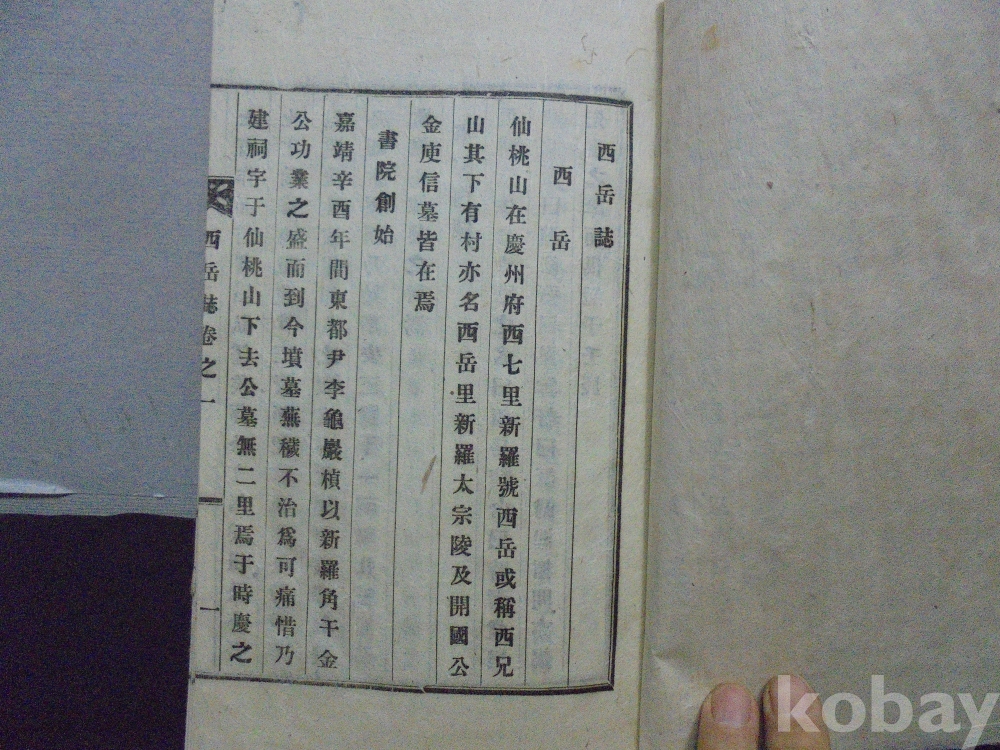 西岳誌
西岳
仙桃山在慶州府西七里新羅號西岳或稱西兄
山其下有村亦名西岳里新羅太宗陵及開國公
金庾信墓皆在焉
書院創始
嘉靖辛酉年間東都尹李龜巖楨以新羅角干金
公功業之盛而到今墳墓蕪穢不治爲可痛惜乃
建祠宇于仙桃山下去公墓無二里焉于時慶之
西岳誌卷之一
一
kobay